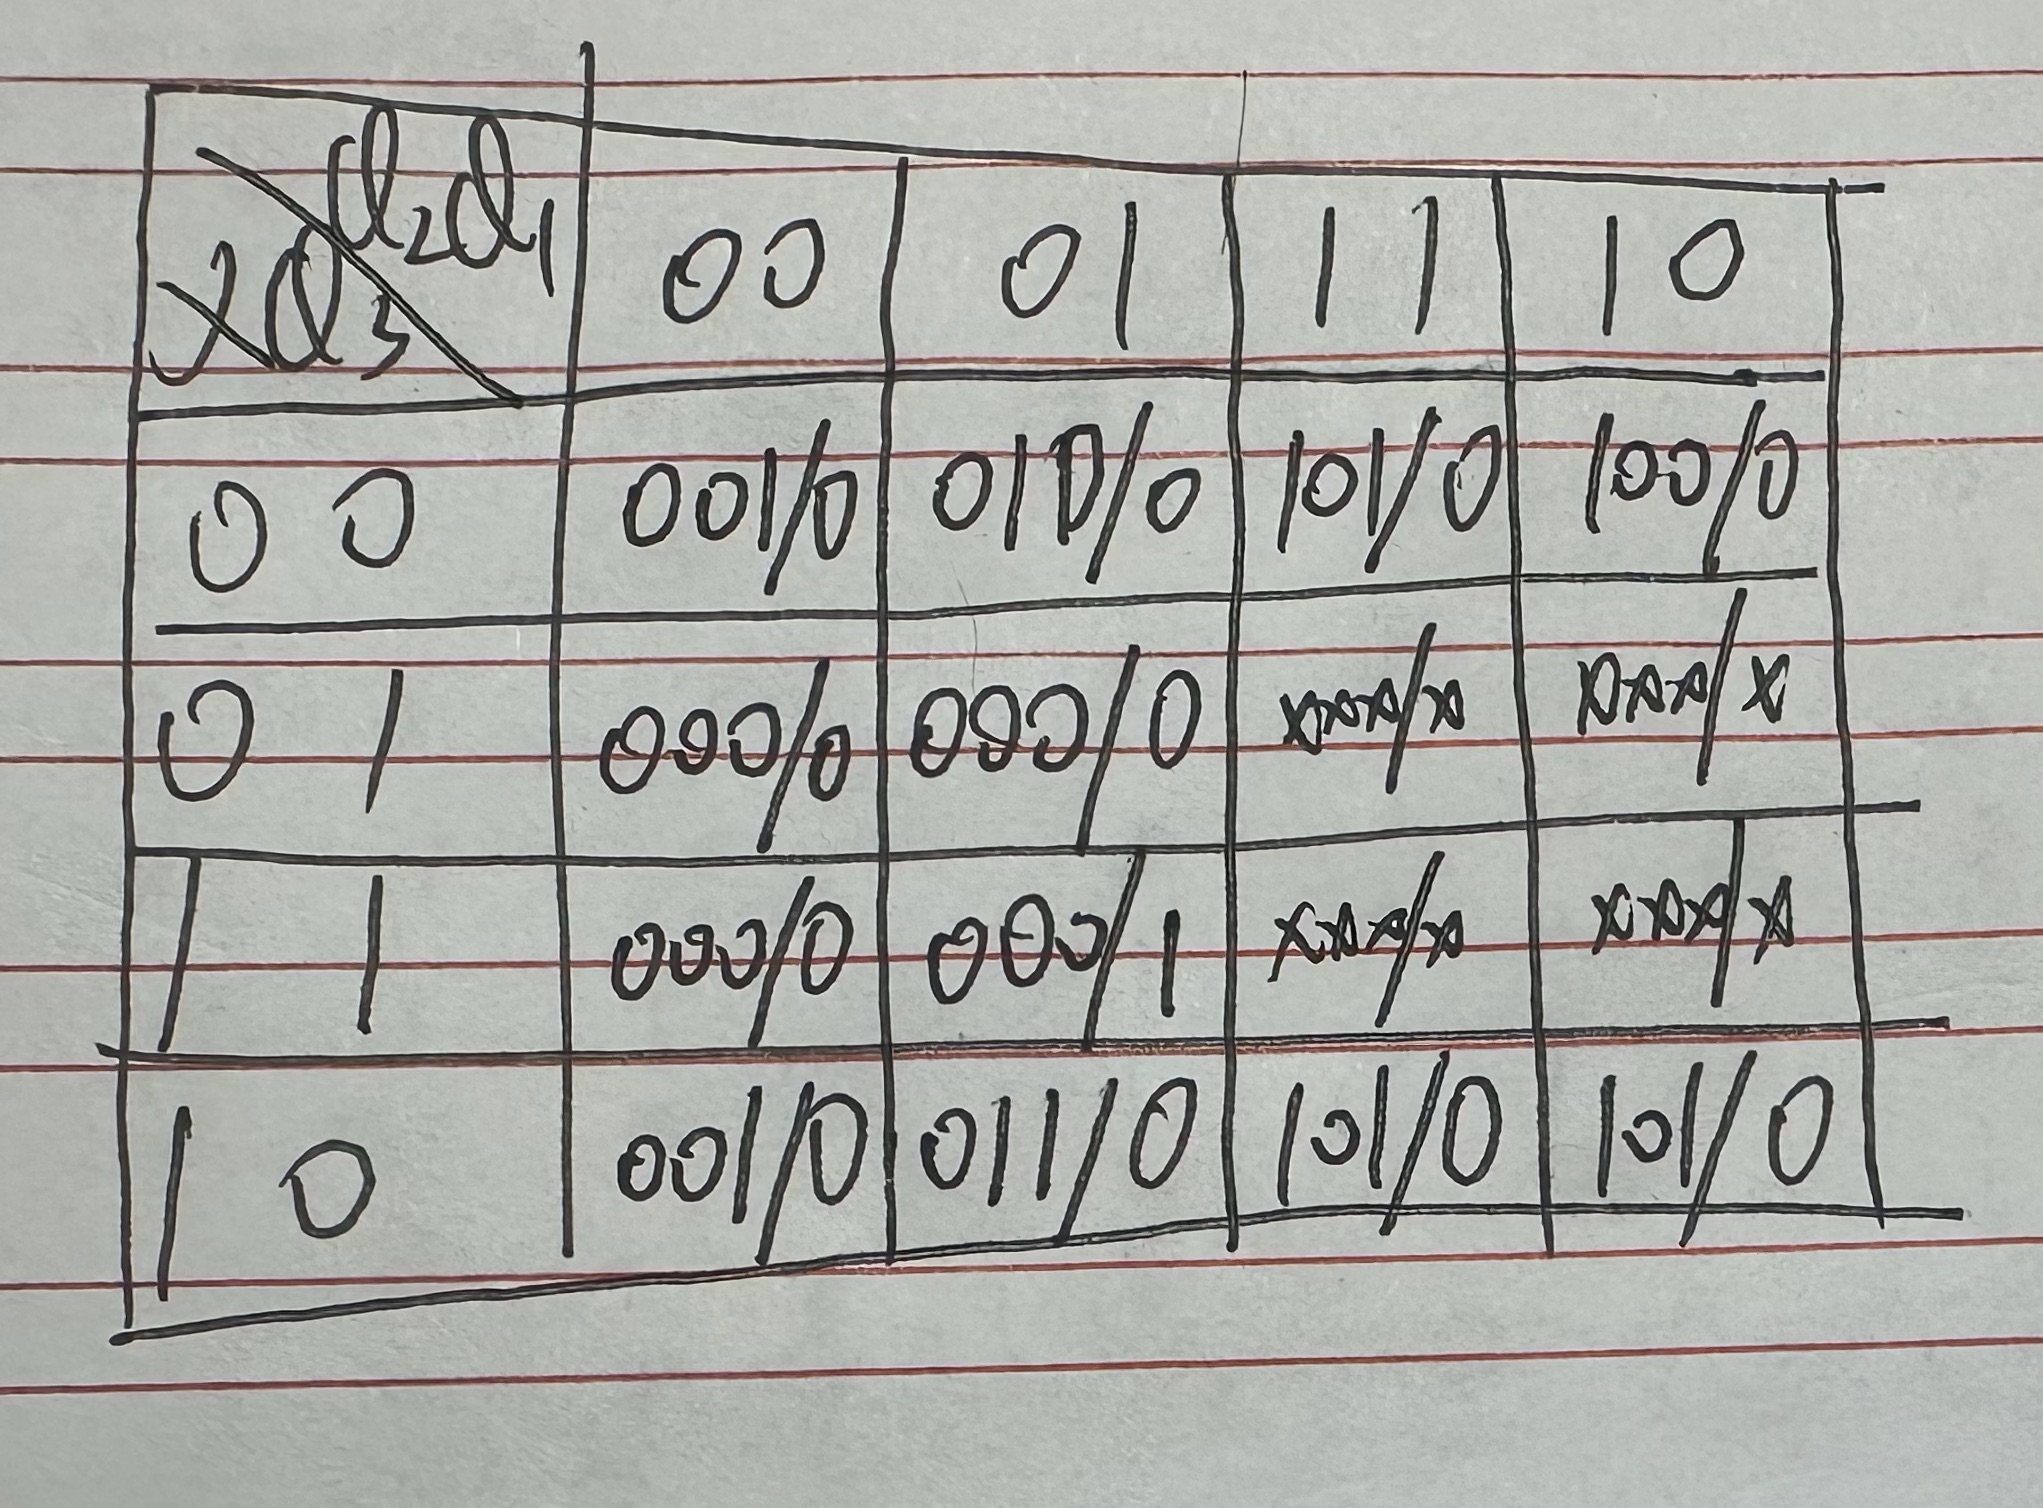 d₂d₁
xd₃ 00 01 11 10
00 001/0 010/0 101/0 100/0
01 000/0 000/0 xxx/x xxx/x
11 000/0 000/1 xxx/x xxx/x
10 001/0 011/0 101/0 101/0